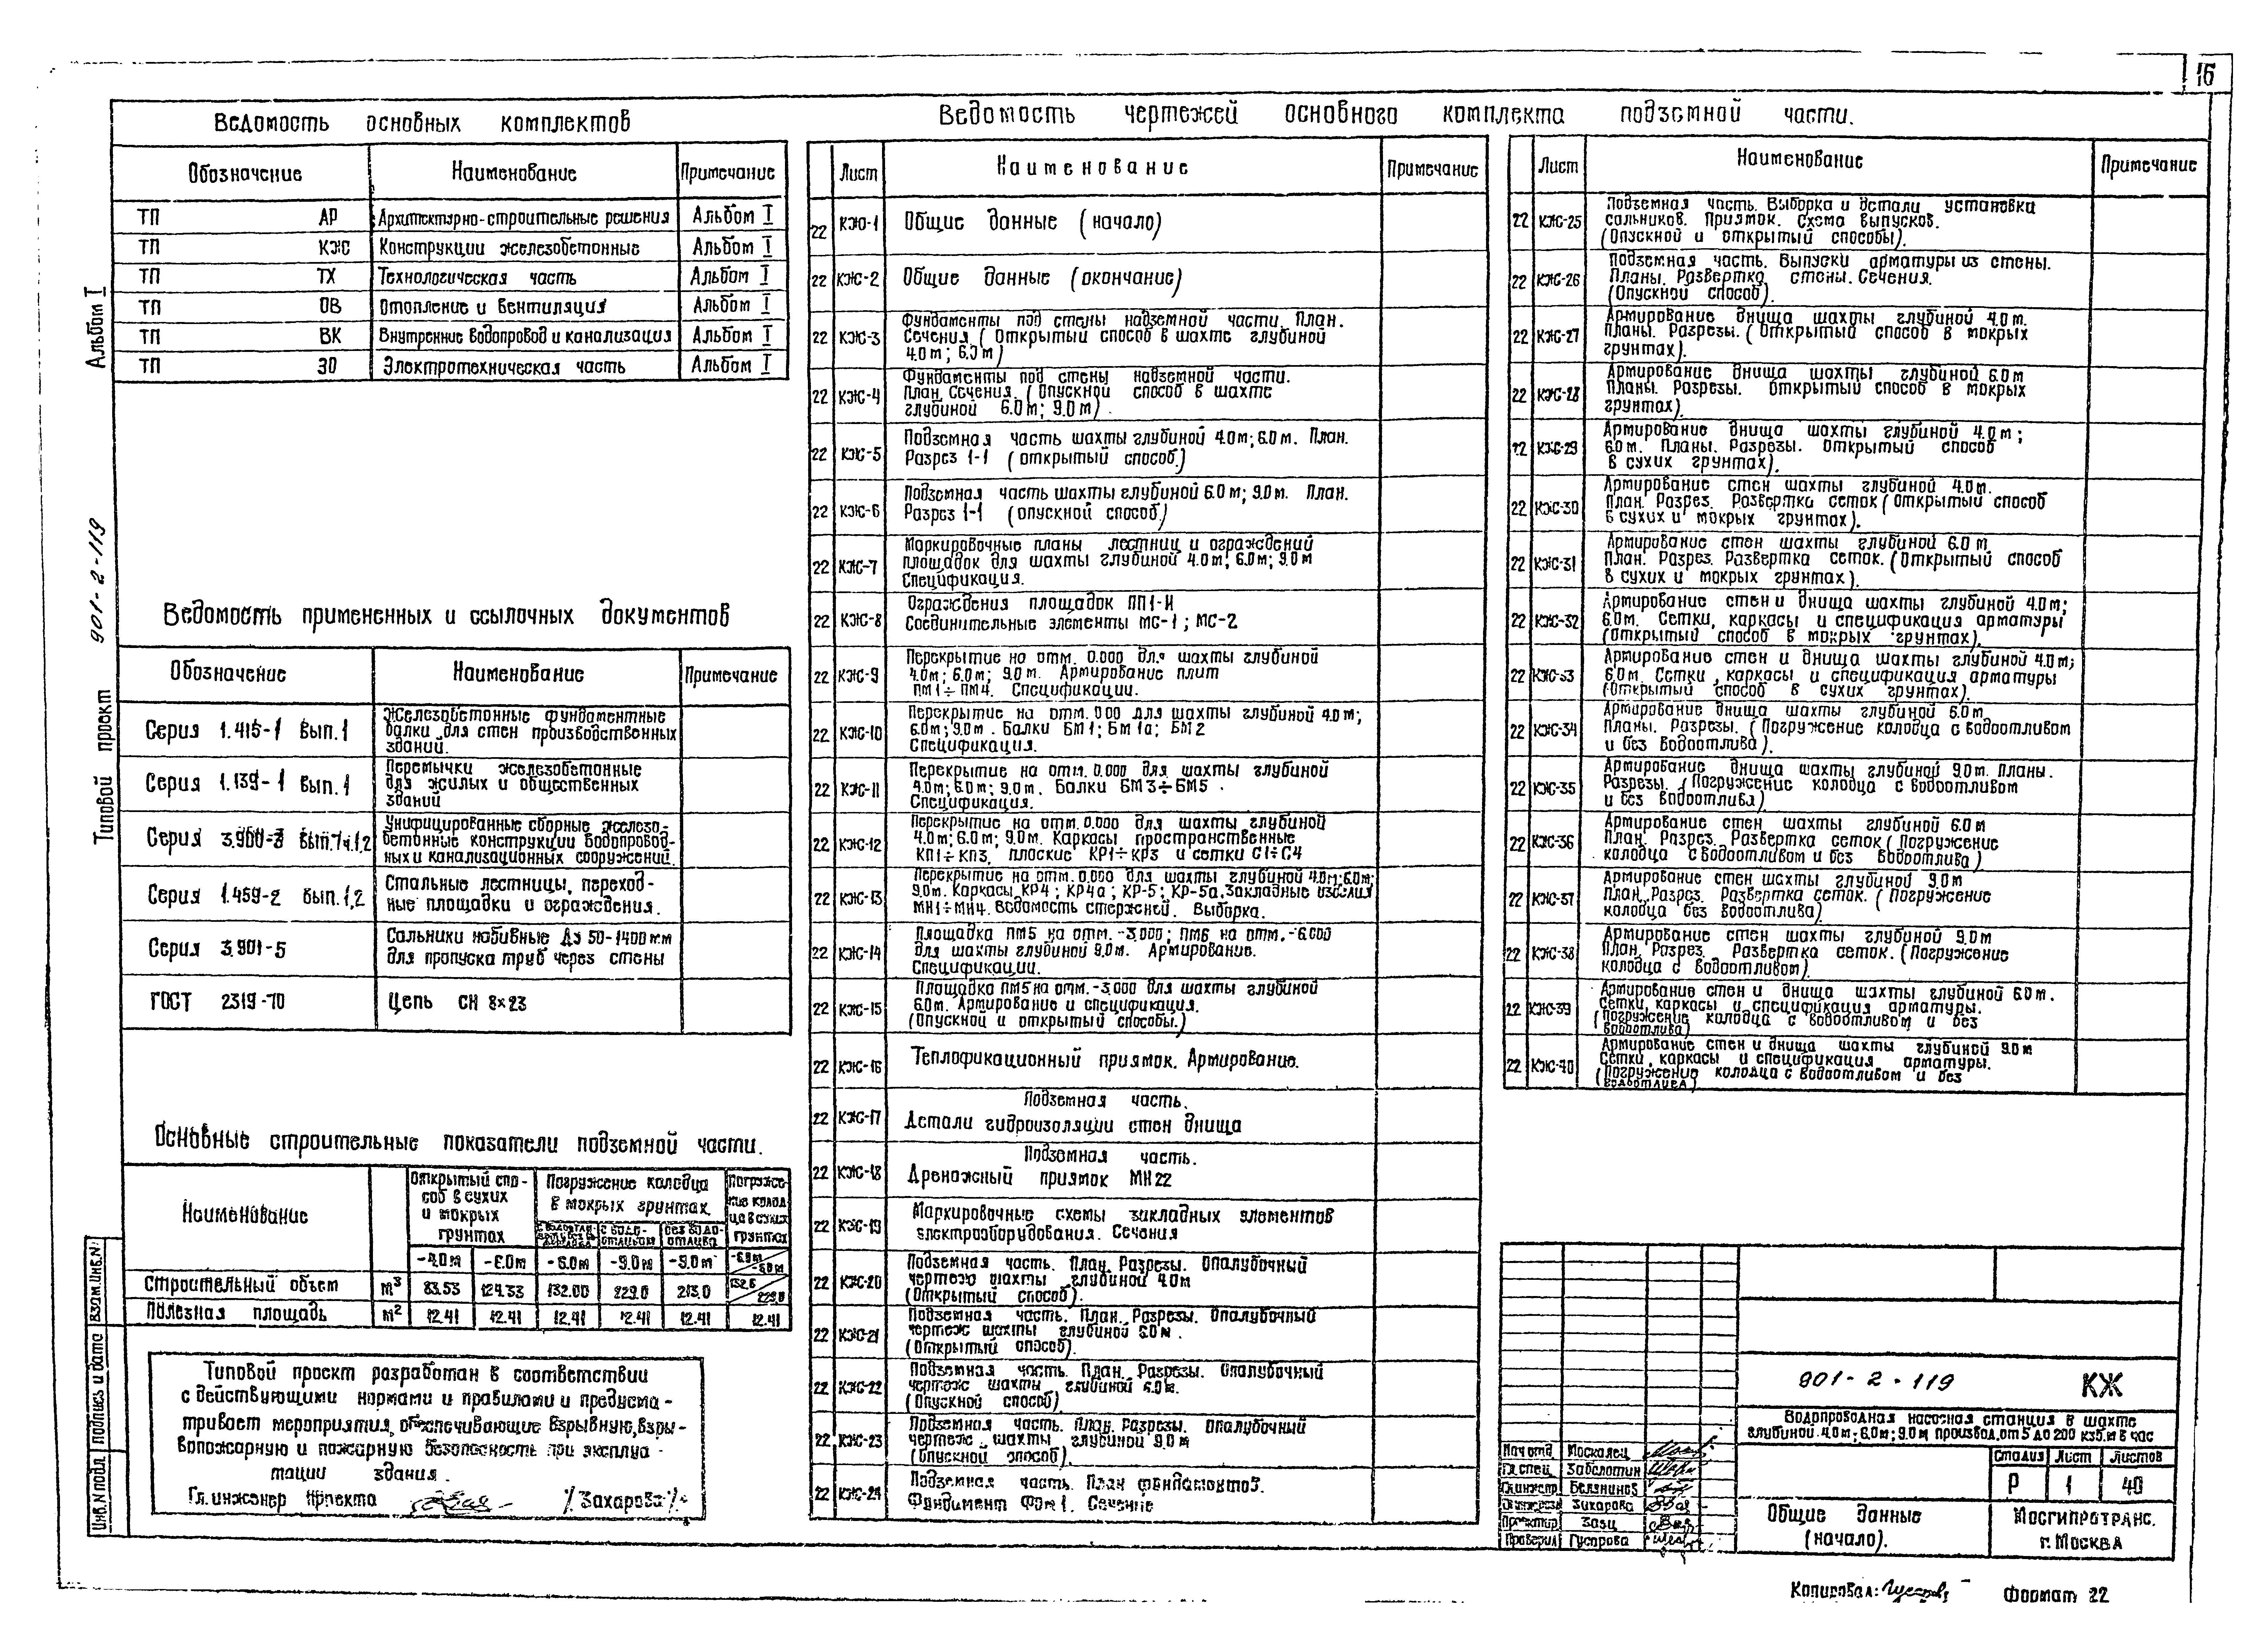 16
Ведомость основных комплектов
Обозначение Наименование Примечание
ТП АР Архитектурно-строительные решения Альбом I
ТП КЖ Конструкции железобетонные Альбом I
ТП ТХ Технологическая часть Альбом I
ТП ОВ Отопление и вентиляция Альбом I
ТП ВК Внутренние водопровод и канализация Альбом I
ТП ЭО Электротехническая часть Альбом I
Альбом I
Типовой проект 901-2-119
Ведомость примененных и ссылочных документов
Обозначение Наименование Примечание
Серия 1.415-1 вып.1 Железобетонные фундаментные
балки для стен производственных
зданий.
Серия 1.139-1 вып.1 Перемычки железобетонные
для жилых и общественных
зданий
Серия 3.900-3 вып.7ч.1,2 Унифицированные сборные железо-
бетонные конструкции водопровод-
ных и канализационных сооружений.
Серия 1.459-2 вып.1,2 Стальные лестницы, переход-
ные площадки и ограждения.
Серия 3.901-5 Сальники набивные Ду 50-1400мм
для пропуска труб через стены
ГОСТ 2319-70 Цепь СН 8×23
Основные строительные показатели подземной части.
Наименование
Открытый спо-
соб в сухих
и мокрых
грунтах
Погружение колодца
в мокрых грунтах.
с водо-
отливом
без водо-
отлива
Погруже-
ние колод
ца в сухих
грунтах
-4.0м -6.0м -6.0м -9.0м -9.0м -6.0м -9.0м
Строительный объем м³ 83.53 124.33 132.00 229.0 213.0 132.0 229.0
Полезная площадь м² 12.41 12.41 12.41 12.41 12.41 12.41
Типовой проект разработан в соответствии
с действующими нормами и правилами и предусма-
тривает мероприятия, обеспечивающие взрывную, взры-
вопожарную и пожарную безопасность при эксплуа-
тации здания.
Гл. инженер проекта /Захарова/
Взам.инв.N
Подпись и дата
Инв.N подл.
Ведомость чертежей основного комплекта подземной части.
Лист Наименование Примечание
22 КЖ-1 Общие данные (начало)
22 КЖ-2 Общие данные (окончание)
22 КЖ-3 Фундаменты под стены надземной части. План.
Сечения (Открытый способ в шахте глубиной
4.0м; 6.0м)
22 КЖ-4 Фундаменты под стены надземной части.
План. Сечения. (Опускной способ в шахте
глубиной 6.0м; 9.0м).
22 КЖ-5 Подземная часть шахты глубиной 4.0м; 6.0м. План.
Разрез 1-1 (открытый способ.)
22 КЖ-6 Подземная часть шахты глубиной 6.0м; 9.0м. План.
Разрез 1-1 (опускной способ.)
22 КЖ-7 Маркировочные планы лестниц и ограждений
площадок для шахты глубиной 4.0м; 6.0м; 9.0м
Спецификация.
22 КЖ-8 Ограждения площадок ПП1-И
Соединительные элементы МС-1; МС-2
22 КЖ-9 Перекрытие на отм. 0.000 для шахты глубиной
4.0м; 6.0м; 9.0м. Армирование плит
ПМ1÷ПМ4. Спецификации.
22 КЖ-10 Перекрытие на отм. 0.00 для шахты глубиной 4.0м;
6.0м; 9.0м. Балки БМ1; БМ1а; БМ2
Спецификация.
22 КЖ-11 Перекрытие на отм. 0.000 для шахты глубиной
4.0м; 6.0м; 9.0м. Балки БМ3÷БМ5.
Спецификация.
22 КЖ-12 Перекрытие на отм. 0.000 для шахты глубиной
4.0м; 6.0м; 9.0м. Каркасы пространственные
КП1÷КП3, плоские КР1÷КР3 и сетки С1÷С4
22 КЖ-13 Перекрытие на отм. 0.000 для шахты глубиной 4.0м; 6.0м;
9.0м. Каркасы КР4; КР4а; КР-5; КР-5а. Закладные изделия
МН1÷МН4. Ведомость стержней. Выборка.
22 КЖ-14 Площадка ПМ5 на отм. -3.000; ПМ6 на отм. -6.000
для шахты глубиной 9.0м. Армирование.
Спецификации.
22 КЖ-15 Площадка ПМ5 на отм. -3.000 для шахты глубиной
6.0м. Армирование и спецификация.
(Опускной и открытый способы.)
22 КЖ-16 Теплофикационный приямок. Армирование.
22 КЖ-17 Подземная часть.
Детали гидроизоляции стен днища
22 КЖ-18 Подземная часть.
Дренажный приямок МН22
22 КЖ-19 Маркировочные схемы закладных элементов
электрооборудования. Сечения
22 КЖ-20 Подземная часть. План. Разрезы. Опалубочный
чертеж шахты глубиной 4.0м
(Открытый способ).
22 КЖ-21 Подземная часть. План. Разрезы. Опалубочный
чертеж шахты глубиной 6.0м.
(Открытый способ).
22 КЖ-22 Подземная часть. План. Разрезы. Опалубочный
чертеж шахты глубиной 6.0м.
(Опускной способ)
22 КЖ-23 Подземная часть. План. Разрезы. Опалубочный
чертеж шахты глубиной 9.0м
(Опускной способ).
22 КЖ-24 Подземная часть. План фундаментов.
Фундамент Фом1. Сечение
Лист Наименование Примечание
22 КЖ-25 Подземная часть. Выборка и детали установка
сальников. Приямок. Схема выпусков.
(Опускной и открытый способы).
22 КЖ-26 Подземная часть. Выпуски арматуры из стены.
Планы. Развертка стены. Сечения.
(Опускной способ).
22 КЖ-27 Армирование днища шахты глубиной 4.0м.
Планы. Разрезы. (Открытый способ в мокрых
грунтах).
22 КЖ-28 Армирование днища шахты глубиной 6.0м
Планы. Разрезы. Открытый способ в мокрых
грунтах).
22 КЖ-29 Армирование днища шахты глубиной 4.0м;
6.0м. Планы. Разрезы. Открытый способ
в сухих грунтах).
22 КЖ-30 Армирование стен шахты глубиной 4.0м.
План. Разрез. Развертка сеток (Открытый способ
в сухих и мокрых грунтах).
22 КЖ-31 Армирование стен шахты глубиной 6.0м
План. Разрез. Развертка сеток. (Открытый способ
в сухих и мокрых грунтах).
22 КЖ-32 Армирование стен и днища шахты глубиной 4.0м;
6.0м. Сетки, каркасы и спецификация арматуры
(Открытый способ в мокрых грунтах).
22 КЖ-33 Армирование стен и днища шахты глубиной 4.0м;
6.0м. Сетки, каркасы и спецификация арматуры
(Открытый способ в сухих грунтах).
22 КЖ-34 Армирование днища шахты глубиной 6.0м
Планы. Разрезы. (Погружение колодца с водоотливом
и без водоотлива).
22 КЖ-35 Армирование днища шахты глубиной 9.0м. Планы.
Разрезы. (Погружение колодца с водоотливом
и без водоотлива)
22 КЖ-36 Армирование стен шахты глубиной 6.0м
План. Разрез. Развертка сеток (Погружение
колодца с водоотливом и без водоотлива)
22 КЖ-37 Армирование стен шахты глубиной 9.0м
План. Разрез. Развертка сеток. (Погружение
колодца без водоотлива)
22 КЖ-38 Армирование стен шахты глубиной 9.0м
План. Разрез. Развертка сеток. (Погружение
колодца с водоотливом)
22 КЖ-39 Армирование стен и днища шахты глубиной 6.0м.
Сетки, каркасы и спецификация арматуры.
(Погружение колодца с водоотливом и без
водоотлива)
22 КЖ-40 Армирование стен и днища шахты глубиной 9.0м
Сетки, каркасы и спецификация арматуры.
(Погружение колодца с водоотливом и без
водоотлива)
901-2-119 КЖ
Водопроводная насосная станция в шахте
глубиной 4.0м; 6.0м; 9.0м производ. от 5 до 200 куб.м в час
Нач отд Москалец
Гл. спец. Заболотин
Захарова
Проектир Заяц
Проверил Гусарова
Стадия Лист Листов
Р 1 40
Общие данные
(начало).
Мосгипротранс.
г. Москва
Копировал:
Формат 22